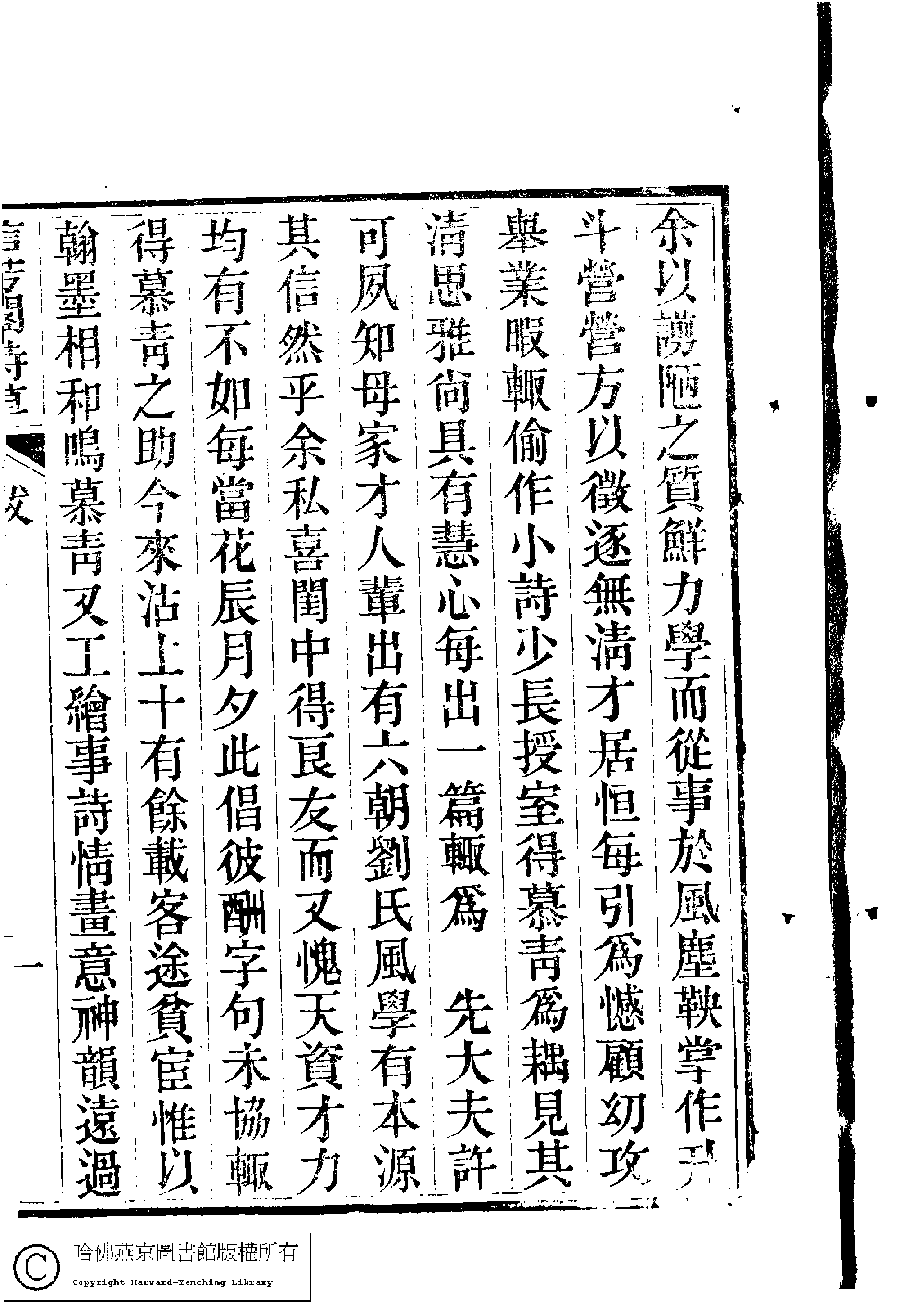 余以謭陋之質鮮力學而從事於風塵鞅掌作升
斗營營方以徵逐無淸才居恒每引爲憾顧幼攻
舉業暇輒偷作小詩少長授室得慕靑爲耦見其
淸思雅尙具有慧心每出一篇輒爲　先大夫許
可夙知母家才人輩出有六朝劉氏風學有本源
其信然乎余私喜閨中得良友而又愧天資才力
均有不如每當花辰月夕此倡彼酬字句未協輒
得慕靑之助今來沽上十有餘載客途貧宦惟以
翰墨相和鳴慕靑又工繪事詩情畫意神韻遠過
信芳閣詩草 跋 一
哈佛燕京圖書館版權所有
Copyright Harvard-Yenching Library